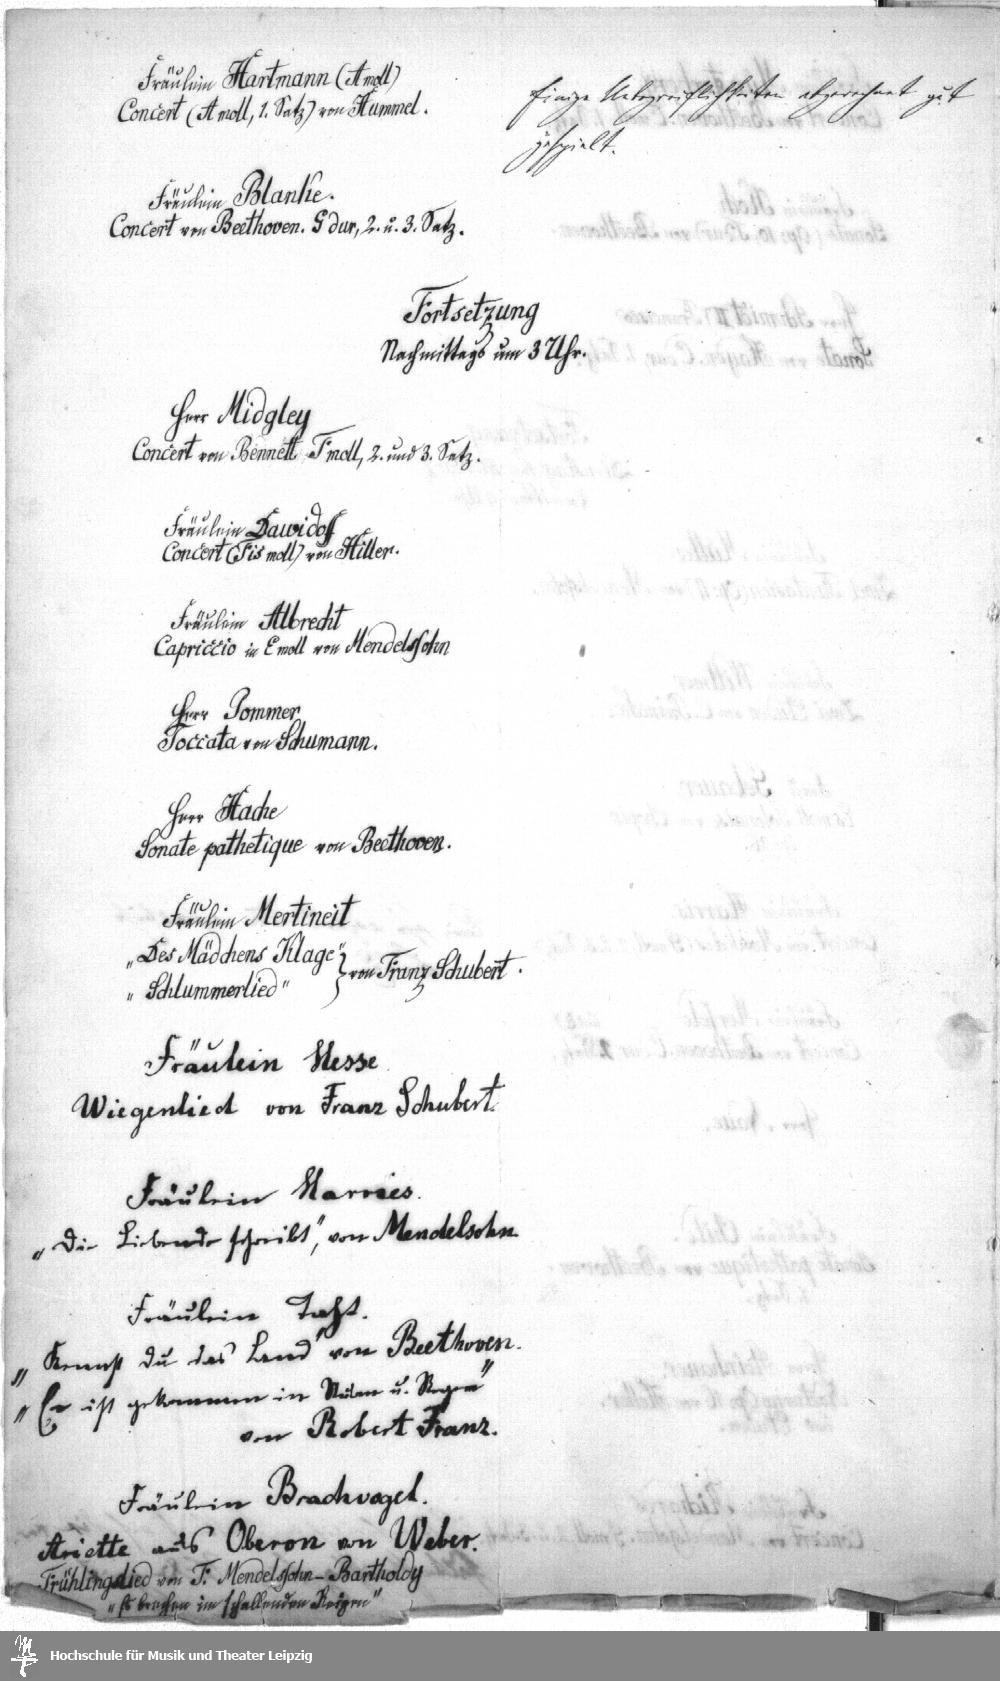 Fräulein Hartmann (A moll)
Concert (A moll, 1. Satz) von Hummel.
Einige Unbegreiflichkeiten abgerechnet gut
gespielt.
Fräulein Blanke.
Concert von Beethoven. G dur, 2. u. 3. Satz.
Fortsetzung
Nachmittags um 3 Uhr.
Herr Midgley
Concert von Bennett F moll, 2. und 3. Satz.
Fräulein Dawidoff
Concert (Fis moll) von Hiller.
Fräulein Albrecht
Capriccio in E moll von Mendelssohn
Herr Pommer
Toccata von Schumann.
Herr Hache
Sonate pathetique von Beethoven.
Fräulein Mertineit
„Des Mädchens Klage"
„Schlummerlied" } von Franz Schubert.
Fräulein Hesse
Wiegenlied von Franz Schubert.
Fräulein Harries.
„Die Liebende schreibt", von Mendelsohn.
Fräulein Taft.
„Kennst du das Land" von Beethoven.
„Er ist gekommen in Sturm u. Regen"
von Robert Franz.
Fräulein Brachvogel.
Ariette aus Oberon von Weber.
Frühlingslied von F. Mendelssohn-Bartholdy
„Es brechen im schallenden Reigen"
Hochschule für Musik und Theater Leipzig